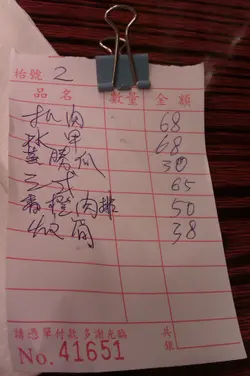 枱號 2
品名 數量 金額
扒肉 68
水甲 68
蒸勝瓜 30
三式 65
香橙肉排 50
38
請憑單付款 多謝光臨 共銀
No. 41651